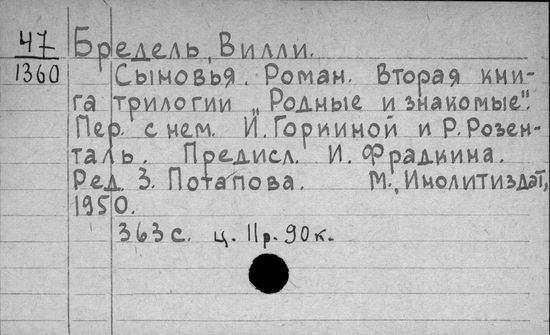 47
1360
Бредель, Вилли.
Сыновья. Роман. Вторая кни-
га трилогии „Родные и знакомые".
Пер. с нем. И. Горкиной и Р. Розен-
таль. Предисл. И. Фрадкина.
Ред. З. Потапова. М., Инолитиздат,
1950.
363 с. ц. 11 р. 90 к.